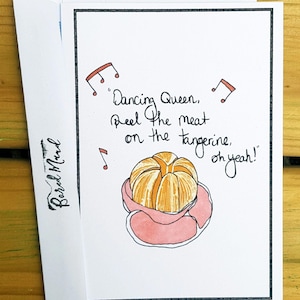 "Dancing Queen,
Feel the meat
on the tangerine,
oh yeah!"
Bored Mind